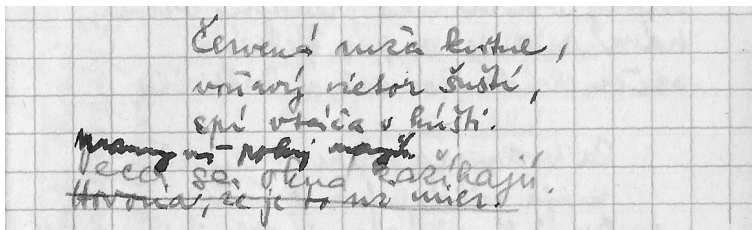 Červená ruža kvitne,
voňavý vietor šuští,
spí vtáča v húští.
pokoj
sa okná zažíhajú.
Hovoria, že je to už mier.